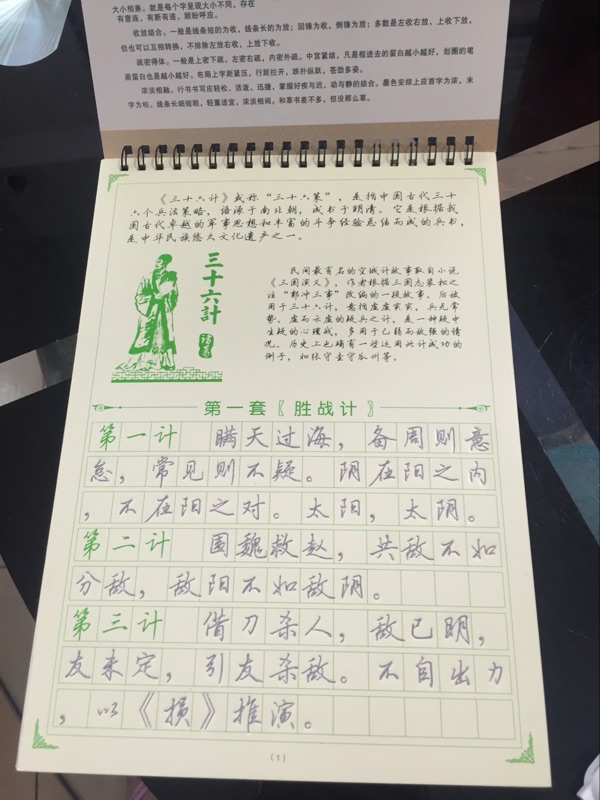 大小相兼，就是每个字呈现大小不同，存在
有意连，有断有连，顾盼呼应。
收放结合。一般是线条短的为收，线条长的为放；回锋为收，侧锋为放；多数是左收右放，上收下放，
但也可以互相转换，不排除左放右收，上放下收。
疏密得体。一般是上密下疏，左密右疏，内密外疏。中宫紧结，凡是框进去的留白越小越好，划圈的笔
画留白也是越小越好。布局上字距紧压，行距拉开，跌扑纵跃，苍劲多姿。
浓淡相融。行书书写应轻松、活泼、迅捷，掌握好疾与迟、动与静的结合。墨色安排上应首字为浓，末
字为枯。线条长细短粗，轻重适宜，浓淡相间。和草书差不多，但没那么草。
《三十六计》或称“三十六策”，是指中国古代三十
六个兵法策略，语源于南北朝，成书于明清。它是根据我
国古代卓越的军事思想和丰富的斗争经验总结而成的兵书，
是中华民族悠久文化遗产之一。
三十六計
民间最有名的空城计故事取自小说
《三国演义》，作者根据三国志裴松之
注“郭冲三事”改编的一段故事。后被
用于三十六计，意指虚虚实实，兵无常
势，虚而示虚的疑兵之计，是一种疑中
生疑的心理战，多用于己弱而敌强的情
况。历史上也确有一些运用此计成功的
例子，如张守圭守瓜州等。
第一套〖胜战计〗
第一计 瞒天过海，备周则意
怠，常见则不疑。阴在阳之内
，不在阳之对。太阳，太阴。
第二计 围魏救赵，共敌不如
分敌，敌阳不如敌阴。
第三计 借刀杀人，敌已明，
友未定，引友杀敌。不自出力
，以《损》推演。
(1)